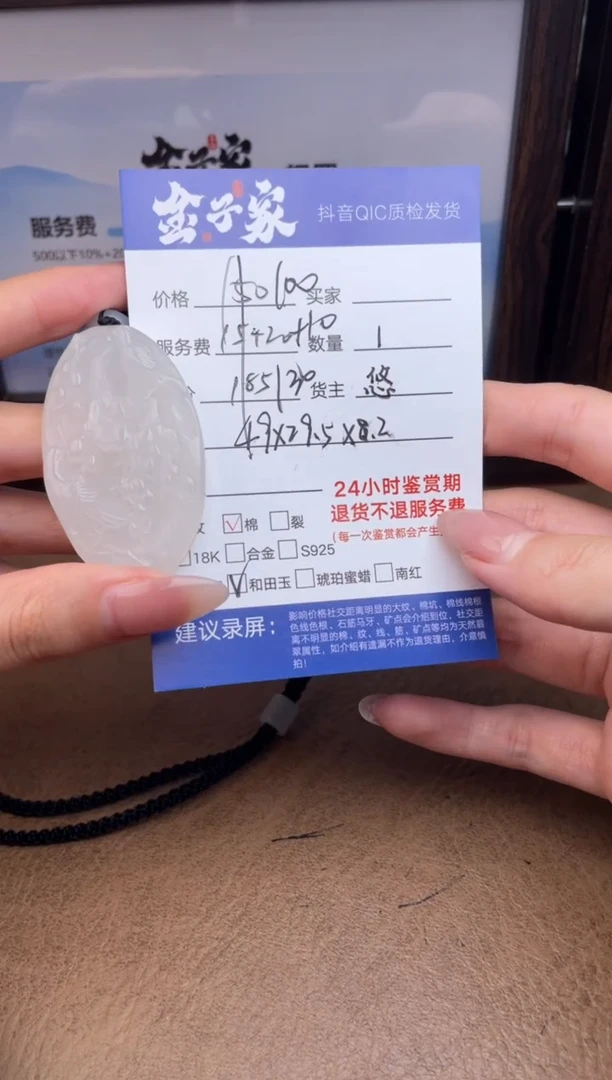 服务费
500以下10%+20
金子家
抖音QIC质检发货
价格 150/100 买家
服务费 15+20+10 数量 1
185/130 货主 悠
49×29.5×8.2
24小时鉴赏期
退货不退服务费
(每一次鉴赏都会产生
棉 裂
18K 合金 S925
和田玉 琥珀蜜蜡 南红
建议录屏：
影响价格社交距离明显的大纹，棉坑，棉线棉根
色线色根、石筋马牙，矿点会介绍到位，社交距
离不明显的棉、纹、线、筋、矿点等均为天然翡
翠属性，如介绍有遗漏不作为退货理由，介意慎
拍！